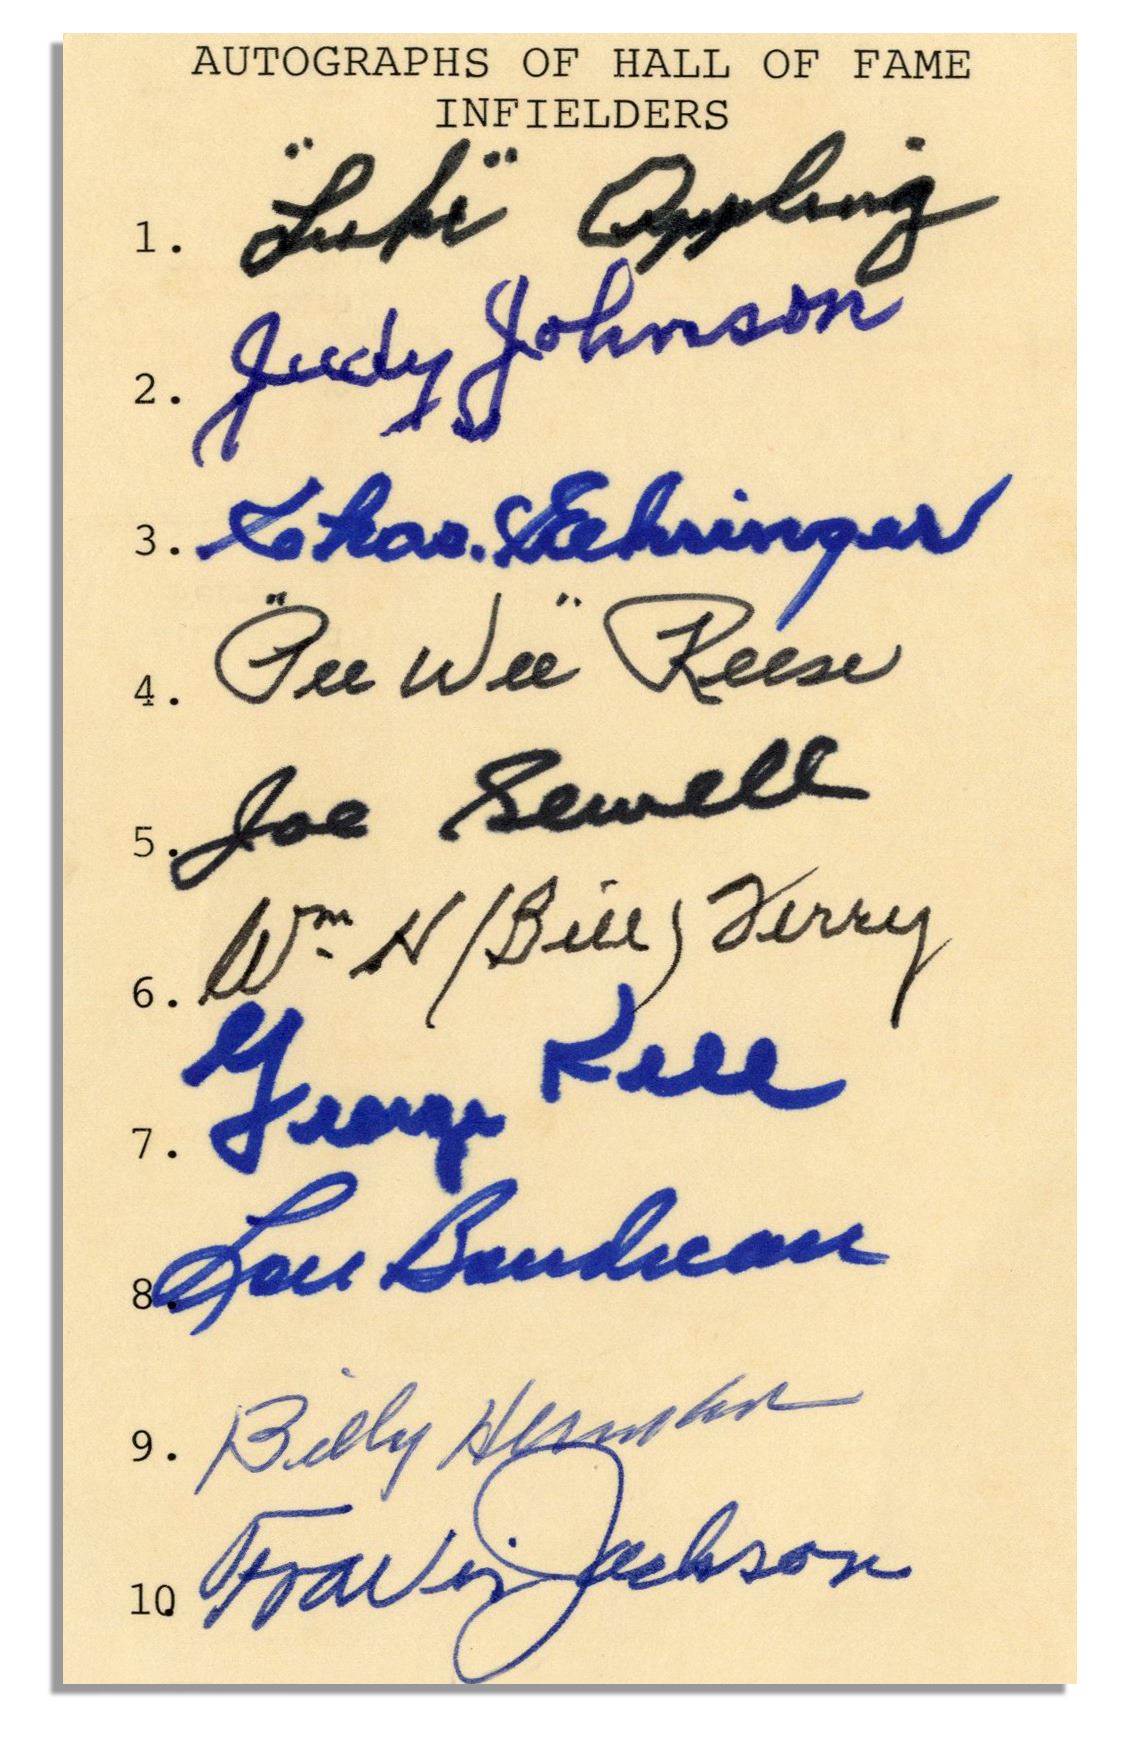 AUTOGRAPHS OF HALL OF FAME
INFIELDERS
1. "Luke" Appling
2. Judy Johnson
3. Chas. Gehringer
4. "Pee Wee" Reese
5. Joe Sewell
6. Wm. H (Bill) Terry
7. George Kell
8. Lou Boudreau
9. Billy Herman
10 Travis Jackson